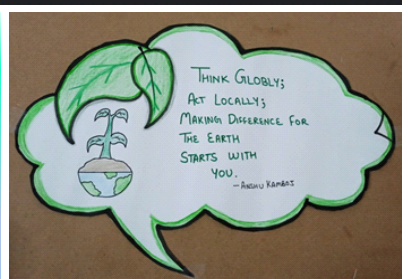 THINK GLOBLY;
ACT LOCALLY;
MAKING DIFFERENCE FOR
THE EARTH
STARTS WITH
YOU.
- ANSHU KAMBOJ